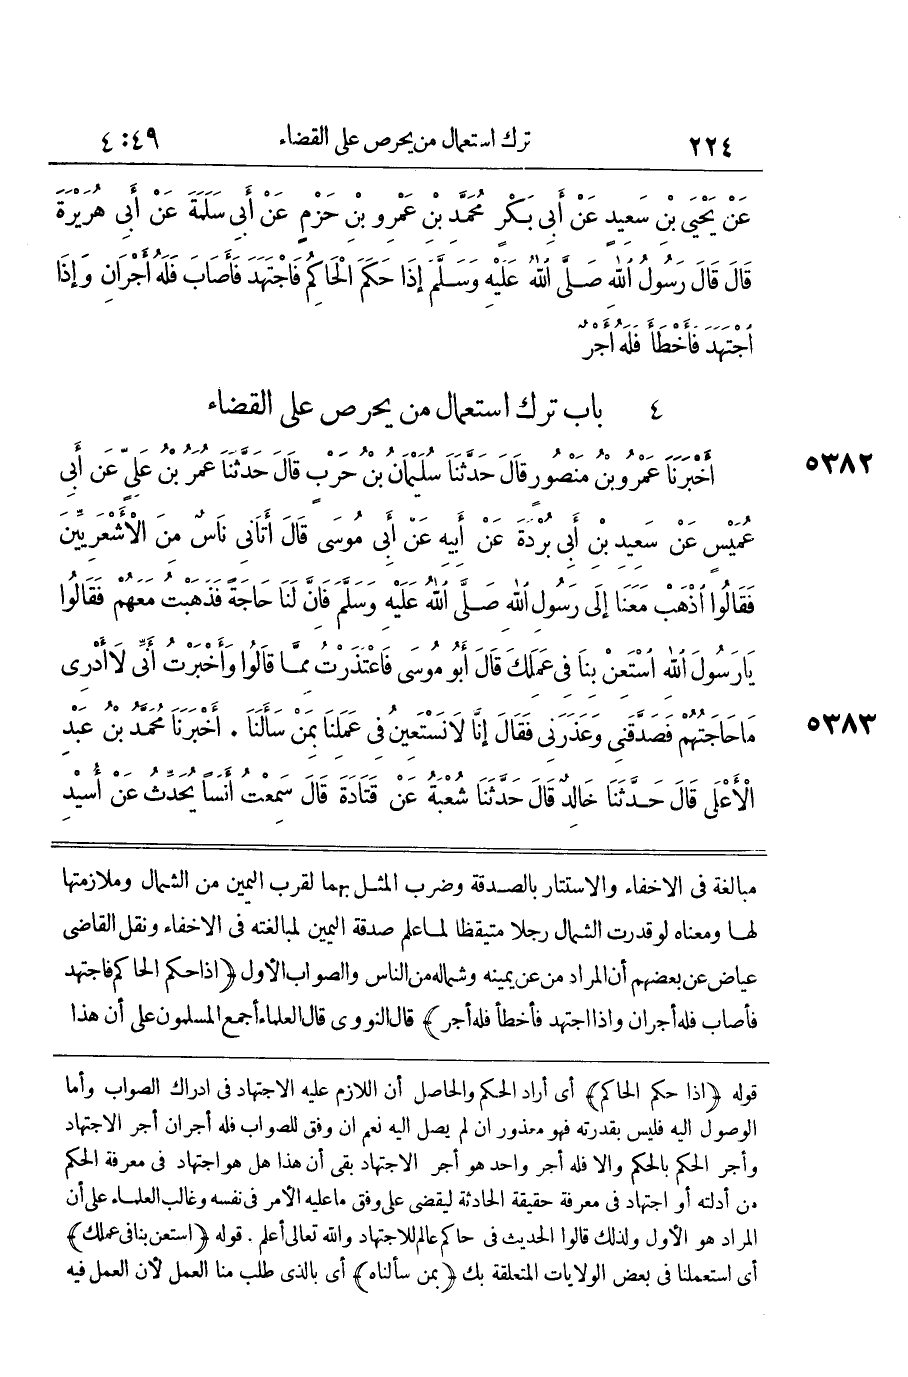 ٢٢٤ ترك استعمال من يحرص على القضاء ٤٩ : ٤
عَنْ يَحْيَى بْنِ سَعِيدٍ عَنْ أَبِى بَكْرِ مُحَمَّدِ بْنِ عَمْرِو بْنِ حَزْمٍ عَنْ أَبِى سَلَمَةَ عَنْ أَبِى هُرَيْرَةَ
قَالَ قَالَ رَسُولُ اللهِ صَلَّى اللهُ عَلَيْهِ وَسَلَّمَ إِذَا حَكَمَ الْحَاكِمُ فَاجْتَهَدَ فَأَصَابَ فَلَهُ أَجْرَانِ وَإِذَا
اجْتَهَدَ فَأَخْطَأَ فَلَهُ أَجْرٌ
٤ باب ترك استعمال من يحرص على القضاء
٥٣٨٢ أَخْبَرَنَا عَمْرُو بْنُ مَنْصُورٍ قَالَ حَدَّثَنَا سُلَيْمَانُ بْنُ حَرْبٍ قَالَ حَدَّثَنَا عُمَرُ بْنُ عَلِىٍّ عَنْ أَبِى
عُمَيْسٍ عَنْ سَعِيدِ بْنِ أَبِى بُرْدَةَ عَنْ أَبِيهِ عَنْ أَبِى مُوسَى قَالَ أَتَانِى نَاسٌ مِنَ الْأَشْعَرِيِّينَ
فَقَالُوا اذْهَبْ مَعَنَا إِلَى رَسُولِ اللهِ صَلَّى اللهُ عَلَيْهِ وَسَلَّمَ فَانَّ لَنَا حَاجَةً فَذَهَبْتُ مَعَهُمْ فَقَالُوا
يَارَسُولَ اللهِ اسْتَعِنْ بِنَا فِى عَمَلِكَ قَالَ أَبُو مُوسَى فَاعْتَذَرْتُ مِمَّا قَالُوا وَأَخْبَرْتُ أَنِّى لَا أَدْرِى
٥٣٨٣ مَاحَاجَتُهُمْ فَصَدَّقَنِى وَعَذَرَنِى فَقَالَ إِنَّا لَانَسْتَعِينُ فِى عَمَلِنَا بِمَنْ سَأَلَنَا . أَخْبَرَنَا مُحَمَّدُ بْنُ عَبْدِ
الْأَعْلَى قَالَ حَدَّثَنَا خَالِدٌ قَالَ حَدَّثَنَا شُعْبَةُ عَنْ قَتَادَةَ قَالَ سَمِعْتُ أَنَسًا يُحَدِّثُ عَنْ أُسَيْدِ
مبالغة فى الاخفاء والاستتار بالصدقة وضرب المثل بهما لقرب اليمين من الشمال وملازمتها
لها ومعناه لو قدرت الشمال رجلا متيقظا لما علم صدقة اليمين لمبالغته فى الاخفاء ونقل القاضى
عياض عن بعضهم أن المراد من عن يمينه وشماله من الناس والصواب الأول ﴿اذا حكم الحاكم فاجتهد
فأصاب فله أجران واذا اجتهد فأخطأ فله أجر﴾ قال النووى قال العلماء أجمع المسلمون على أن هذا
قوله ﴿اذا حكم الحاكم﴾ أى أراد الحكم والحاصل أن اللازم عليه الاجتهاد فى ادراك الصواب وأما
الوصول اليه فليس بقدرته فهو معذور ان لم يصل اليه نعم ان وفق للصواب فله أجران أجر الاجتهاد
وأجر الحكم بالحكم والا فله أجر واحد هو أجر الاجتهاد بقى أن هذا هل هو اجتهاد فى معرفة الحكم
من أدلته أو اجتهاد فى معرفة حقيقة الحادثة ليقضى على وفق ماعليه الأمر فى نفسه وغالب العلماء على أن
المراد هو الأول ولذلك قالوا الحديث فى حاكم عالم للاجتهاد والله تعالى أعلم . قوله ﴿استعن بنا فى عملك﴾
أى استعملنا فى بعض الولايات المتعلقة بك ﴿بمن سألناه﴾ أى بالذى طلب منا العمل لأن العمل فيه